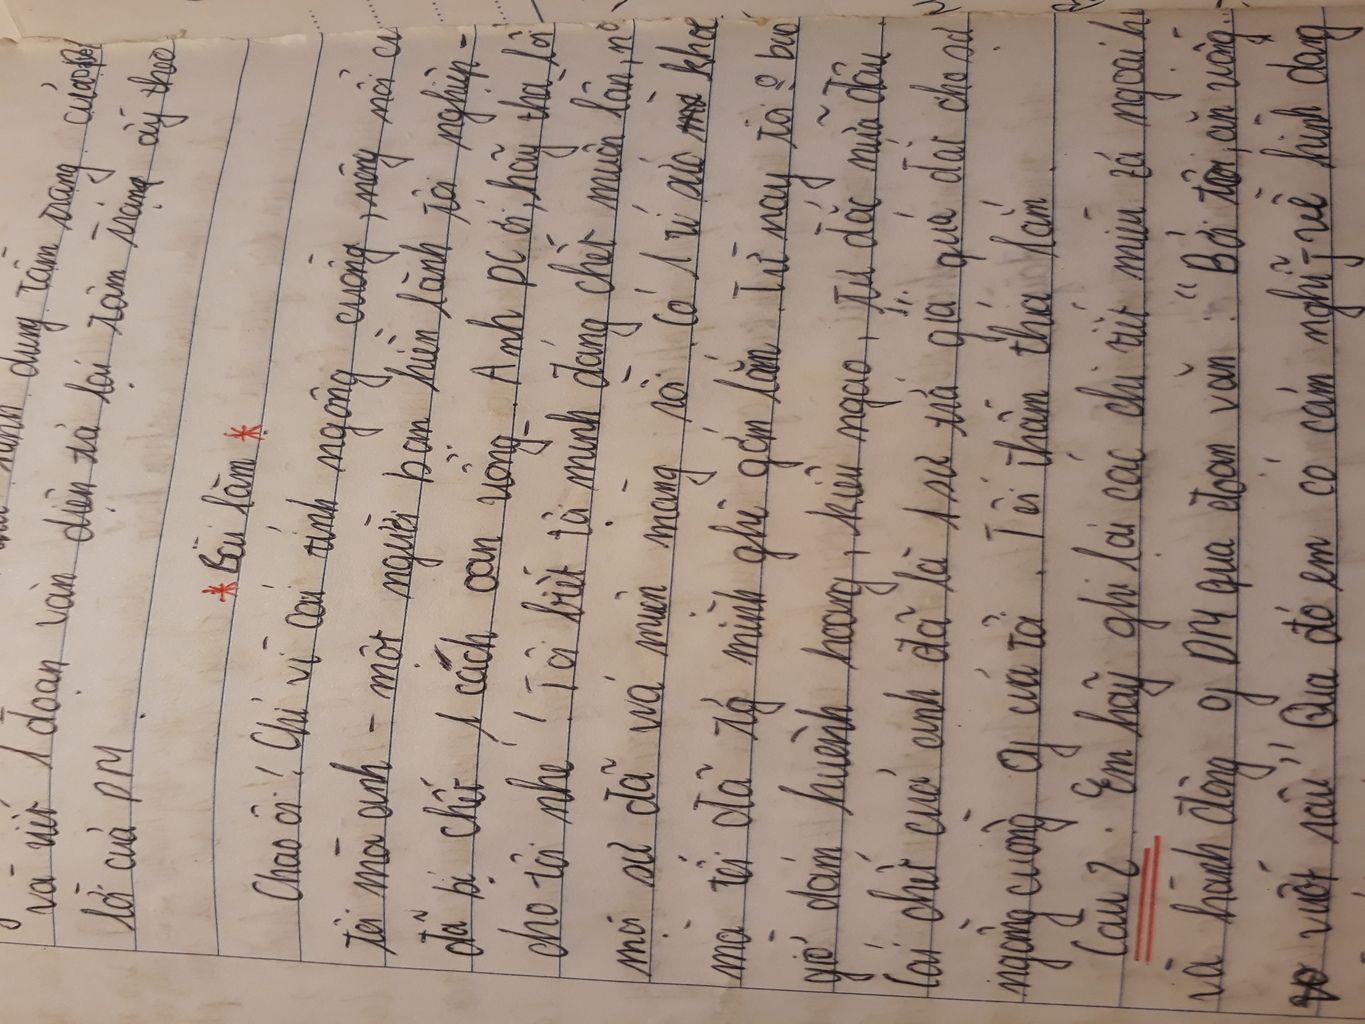 và viết 1 đoạn văn diễn tả lại tâm trạng ấy theo
lời của DM
* Bài làm *
Chao ôi! Chỉ vì cái tính ngông cuồng, nông nổi của
tôi mà anh - một người bạn hiền lành tội nghiệp -
đã bị chết 1 cách oan uổng. Anh DC ơi, hãy tha lỗi
cho tôi nhé! Tôi biết tội mình đáng chết muôn lần, nó
mới sứ dã và muộn màng rồi. Có 1 tí sức khoẻ
mà tôi đã tg mình ghê gớm lắm. Từ nay tôi o bao
giờ dám huênh hoang, kiêu ngạo, tự đắc nữa đâu
Cái chết của anh đã là 1 sự trả giá quá đắt cho sự
ngông cuồng of của tôi. Tôi thấm thía lắm.
Câu 2. Em hãy ghi lại các chi tiết miêu tả ngoại h
và hành động of DM qua đoạn văn: " Bởi tôi ăn uống..
vuốt râu" Qua đó em có cảm nghĩ j về hình dáng